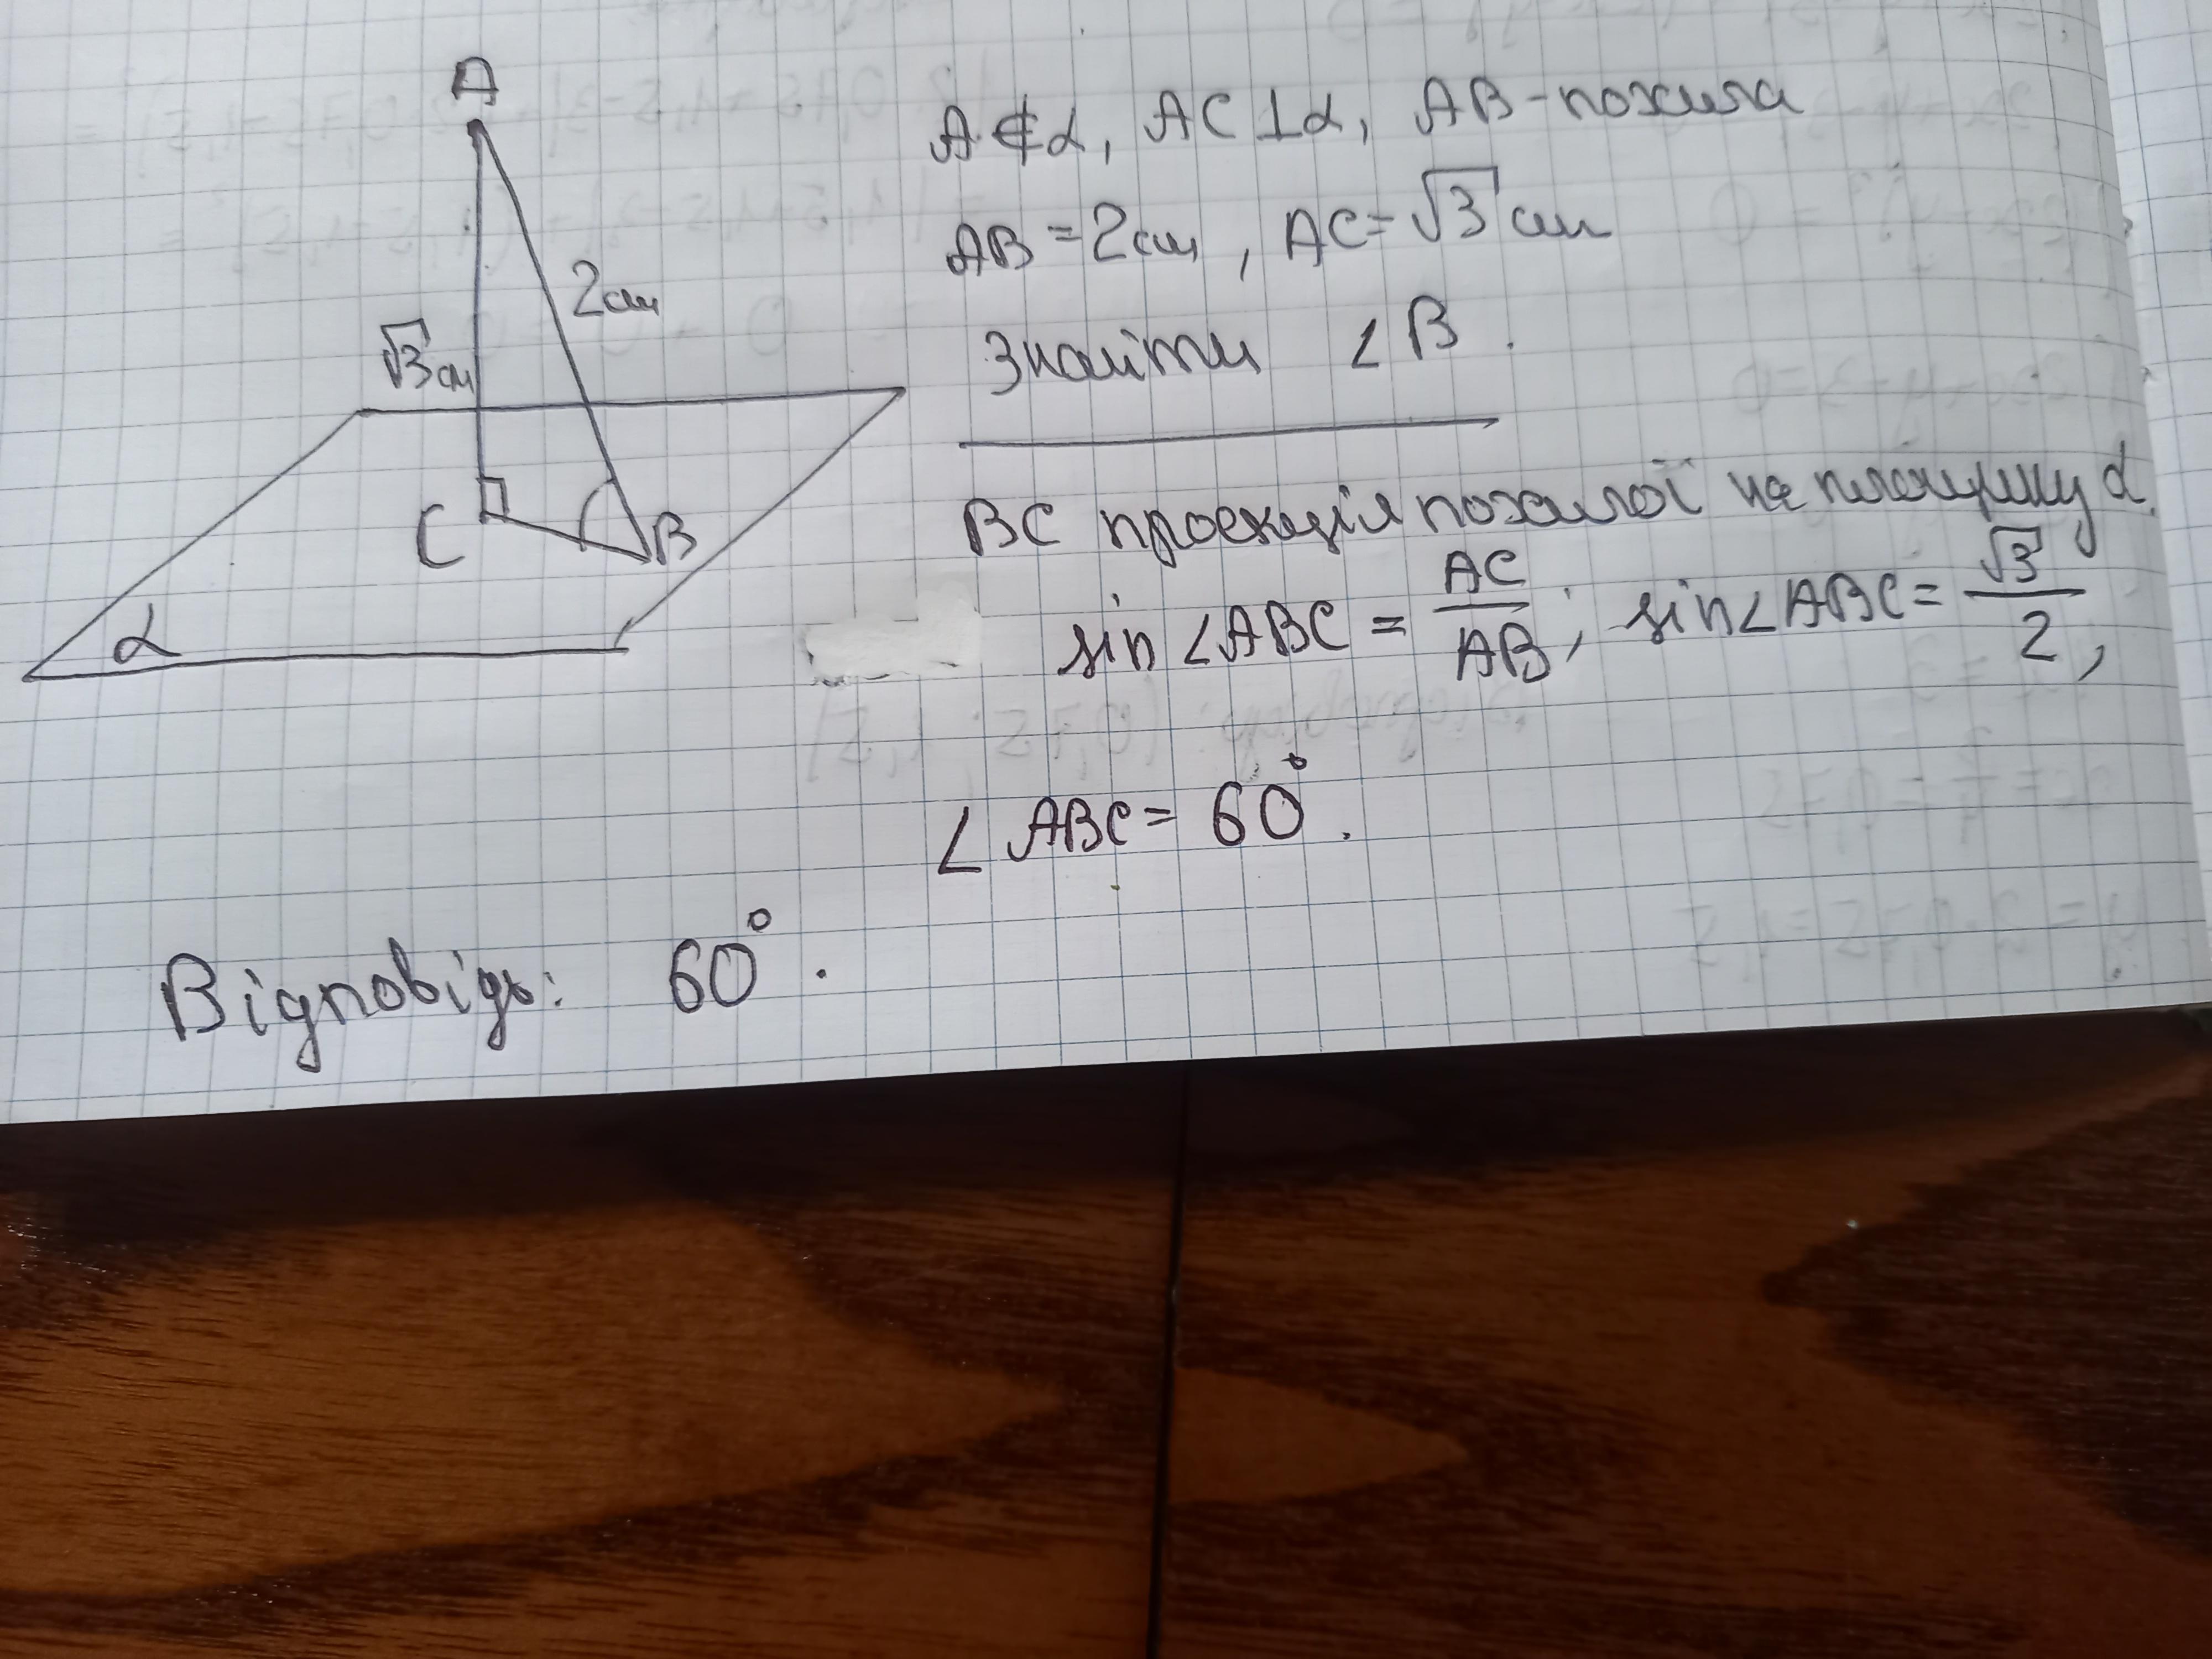 A
√3 см
2 см
C
B
α
A ∉ α, AC ⊥ α, AB - похила
AB = 2 см, AC = √3 см
Знайти ∠B.
BC проекція похилої на площину α.
sin ∠ABC = AC/AB; sin∠ABC = √3/2,
∠ABC = 60°.
Відповідь: 60°.